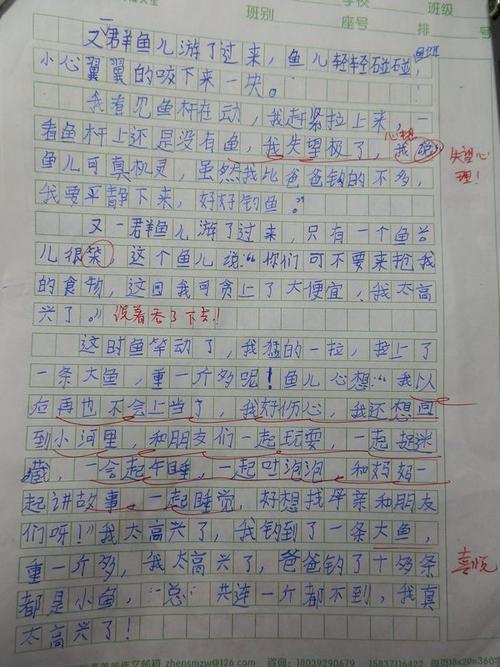 班别 座号 班级 排 号
又群鱼儿游了过来，鱼儿轻轻碰碰，
小心翼翼的咬下来一块。
我看见鱼杆在动，我赶紧拉上来，一
看鱼杆上还是没有鱼，我失望极了，我
心想
失望心理！
鱼儿可真机灵，虽然我比爸爸钓的不多，
我要平静下来，好好钓鱼。
又一群鱼儿游了过来，只有一个鱼
儿很笨，这个鱼儿说：“你们可不要来抢我
的食物，这回我可贪上了大便宜，我太高
兴了。”说着吞了下去！
这时鱼竿动了，我猛的一拉，拉上了
一条大鱼，重一斤多呢！鱼儿心想：“我以
后再也不会上当了，我好伤心，我还想回
到小河里，和朋友们一起玩耍，一起捉迷
藏，一会起午睡，一起吐泡泡，和妈妈一
起讲故事，一起睡觉，好想找母亲和朋友
们呀！”我太高兴了，我钓到了一条大鱼，
重一斤多，我太高兴了，爸爸钓了十多条
喜悦
都是小鱼，总共连一斤都不到，我真
太高兴了！
zhensmzw@126.com 咨询：18039290679